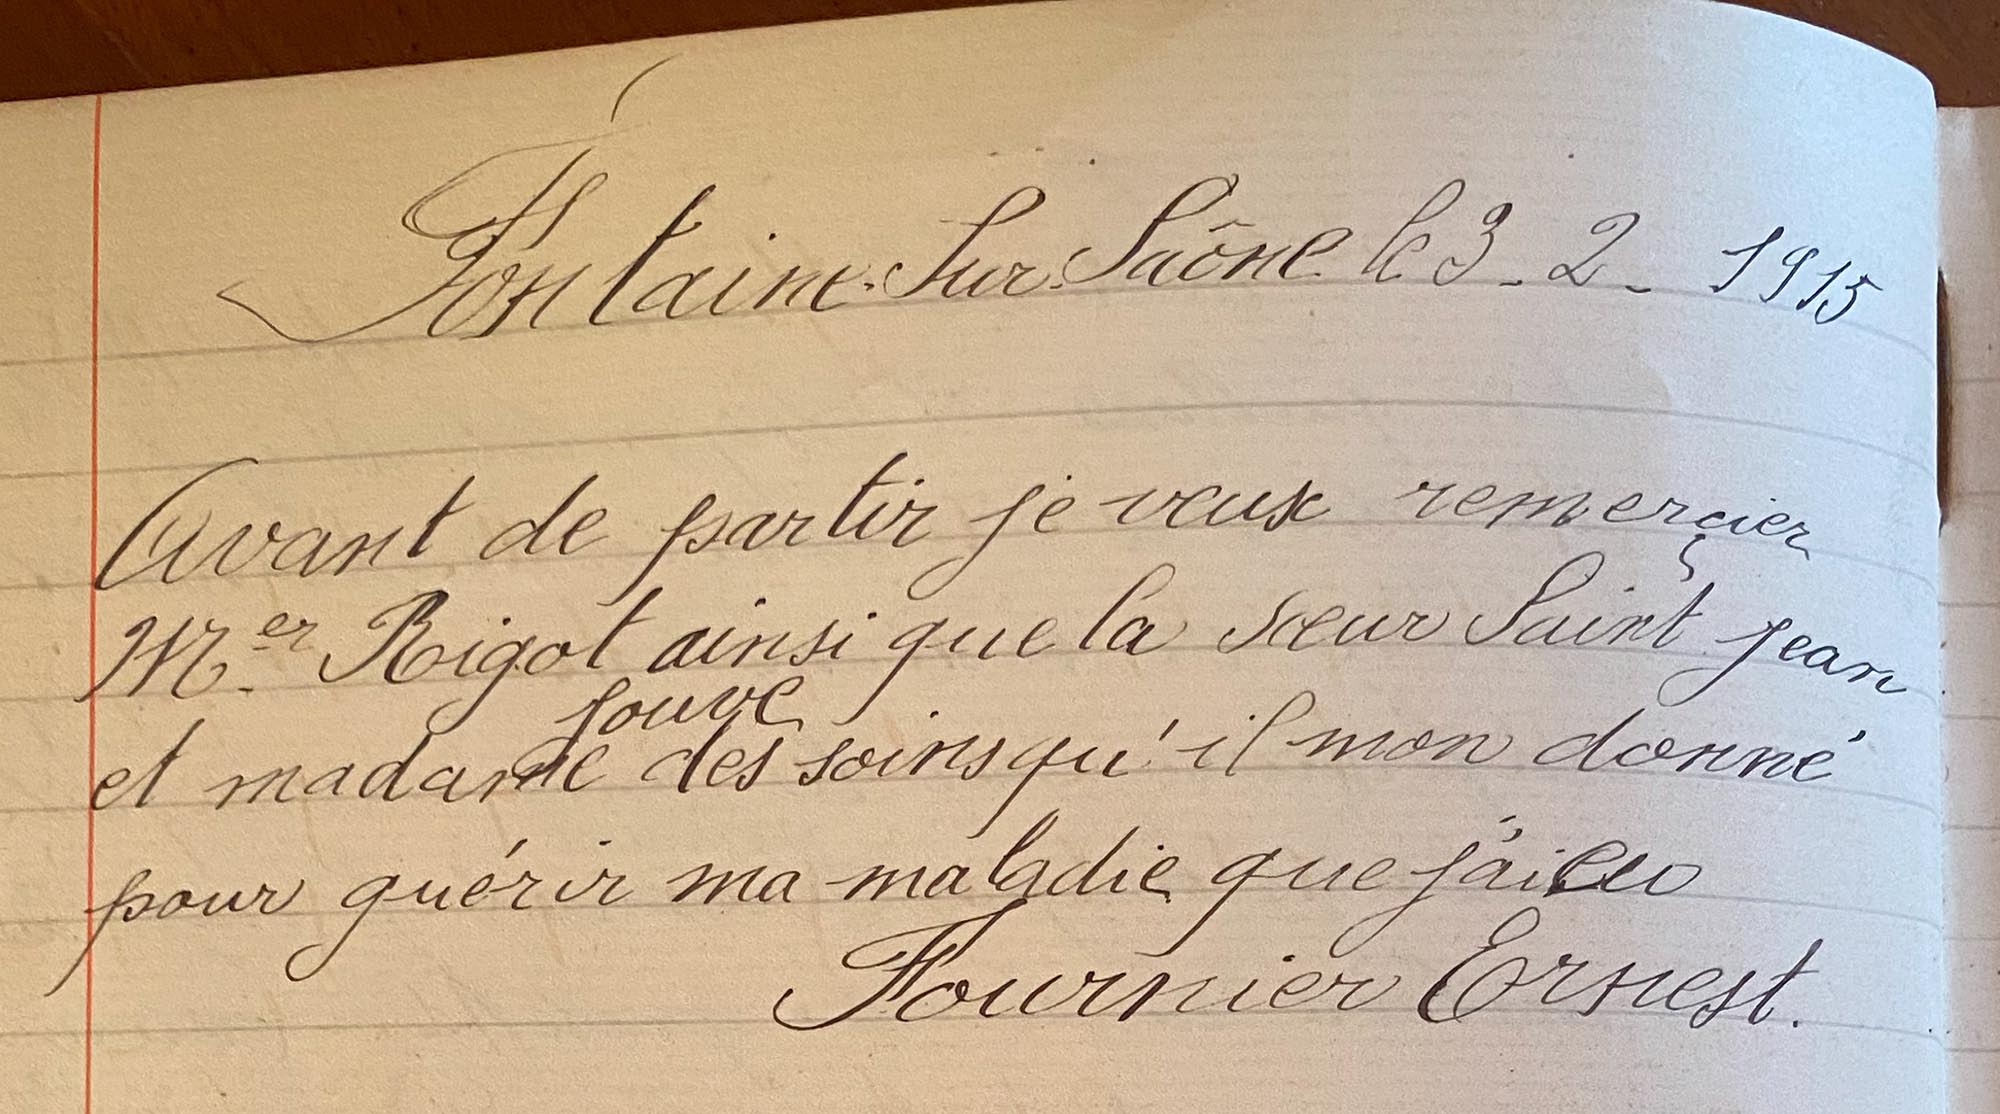 Fontaine-Sur-Saône le 3-2-1915
Avant de partir je veux remerçier
M.er Rigot ainsi que la sœur Saint Jean
Jouve
et madame des soins qu'il mon donné
pour guérir ma maladie que j'ai eu
Fournier Ernest.